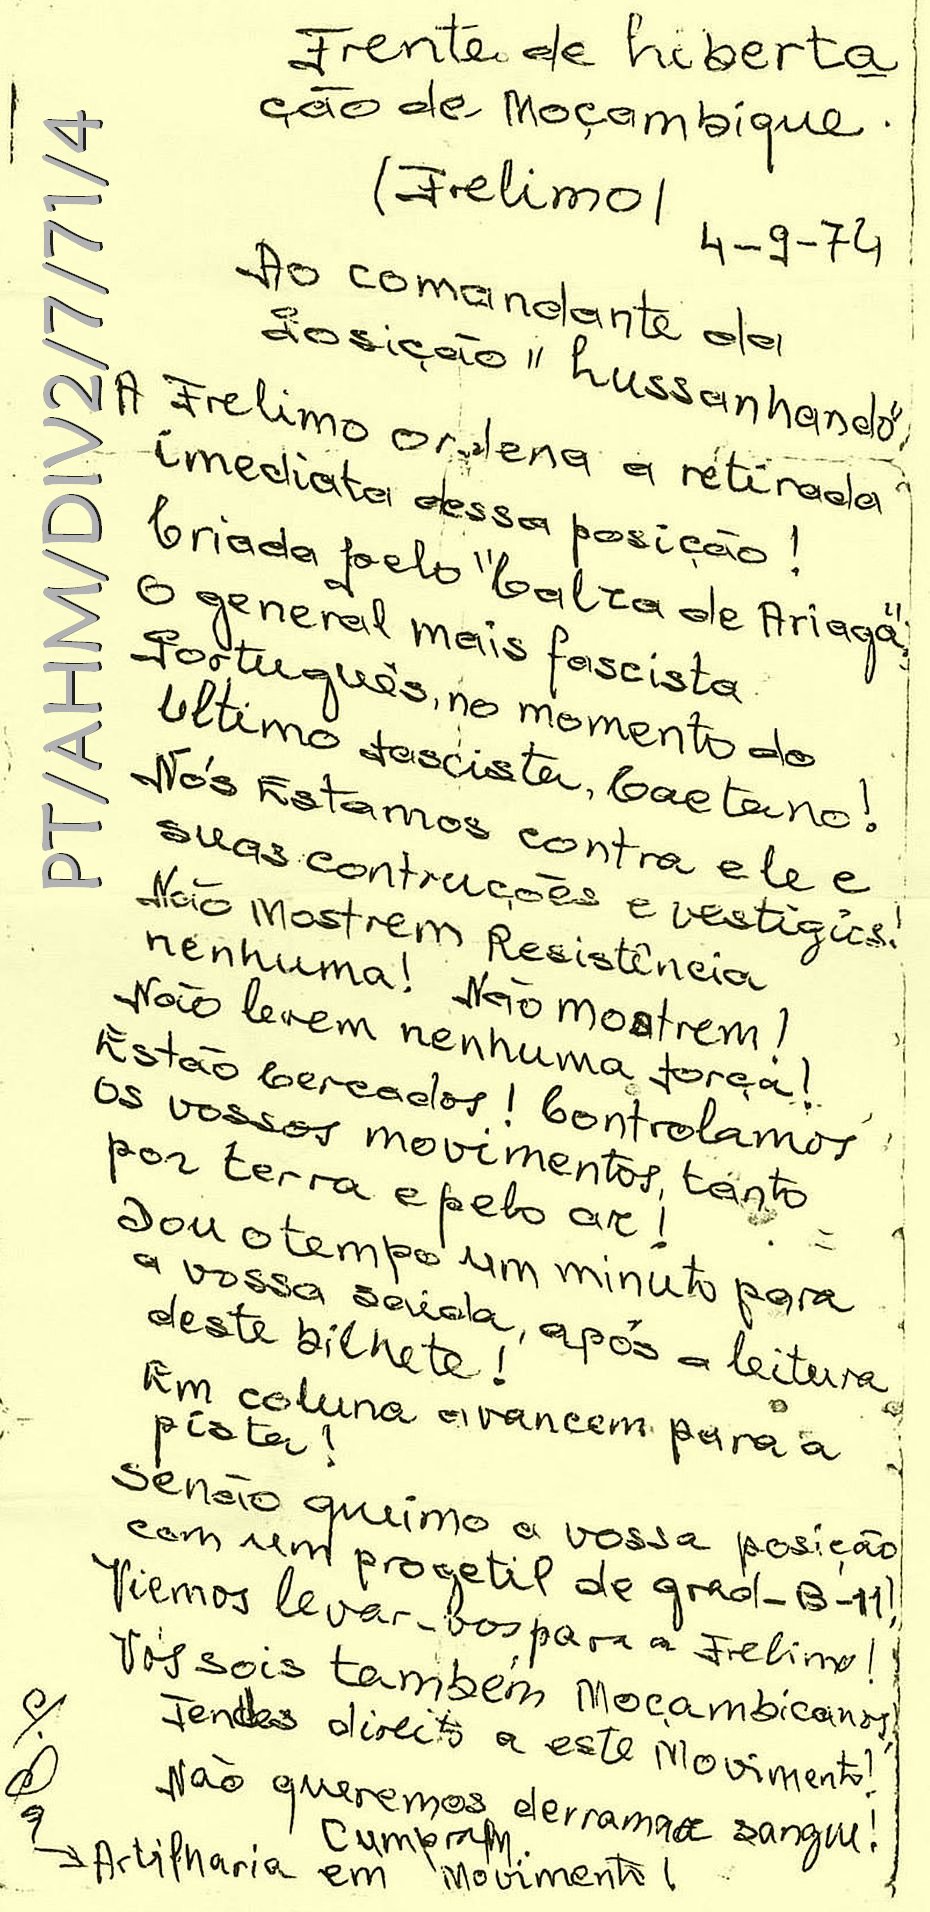 Frente de Liberta
ção de Moçambique.
(Frelimo)
4-9-74
Ao comandante da
Posição "Lussanhando"
A Frelimo ordena a retirada
imediata dessa posição!
Criada pelo "Calza de Ariaga"
O general mais fascista
Português, no momento do
Ultimo fascista, Caetano!
Nós Estamos contra ele e
suas contruções e vestigios!
Não Mostrem Resistência
nenhuma! Não mostrem!
Não levem nenhuma força!
Estão Cercados! Controlamos
os vossos movimentos, tanto
por terra e pelo ar!
Dou o tempo um minuto para
a vossa saida, após a leitura
deste bilhete!
Em coluna avancem para a
pista!
senão queimo a vossa posição
com um progetil de grad-B-11!
Viemos levar-vos, para a Frelimo!
Vós sois também Moçambicanos,
Tendes direito a este Movimento!
Não queremos derramar sangue!
Cumpram.
Artilharia em Movimento!
PT/AHM/DIV2/7/71/4